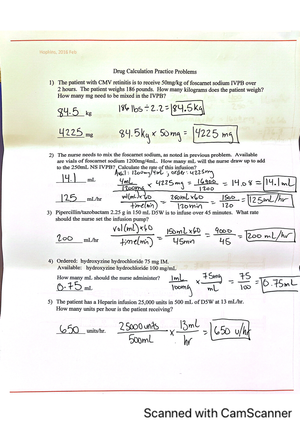 Hopkins, 2018 Kely
Drug Calculation Practice Problems
1) The patient with CMV retinitis is to receive 50mg/kg of foscarnet sodium IVPB over
2 hours. The patient weighs 186 pounds. How many kilograms does the patient weigh?
How many mg need to be mixed in the IVPB?
84.5 kg 186 lbs ÷ 2.2 = 84.5 kg
4225 mg 84.5kg x 50mg = 4225 mg
2) The nurse needs to mix the foscarnet sodium, as noted in previous problem. Available
are vials of foscarnet sodium 1200mg/4mL. How many mL will the nurse draw up to add
to the 250mL NS IVPB? Calculate the rate of this infusion?
Avail: 1200mg/4mL, order: 4225mg
14.1 mL 4mL/1200mg x 4225mg = 16900/1200 = 14.08 = 14.1mL
125 mL/hr vol(mL)x60/time(min) = 250mLx60/120min = 1500/120 = 125mL/hr
3) Piperacillin/tazobactam 2.25 g in 150 mL D5W is to infuse over 45 minutes. What rate
should the nurse set the infusion pump?
200 mL/hr vol(mL)x60/time(min) = 150mLx60/45mn = 9000/45 = 200 mL/hr
4) Ordered: hydroxyzine hydrochloride 75 mg IM.
Available: hydroxyzine hydrochloride 100 mg/mL
How many mL should the nurse administer?
0.75 mL 1mL/100mg x 75mg/mL = 75/100 = 0.75mL
5) The patient has a Heparin infusion 25,000 units in 500 mL of D5W at 13 mL/hr.
How many units per hour is the patient receiving?
650 units/hr 25000 units/500mL x 13mL/hr = 650 u/hr
Scanned with CamScanner